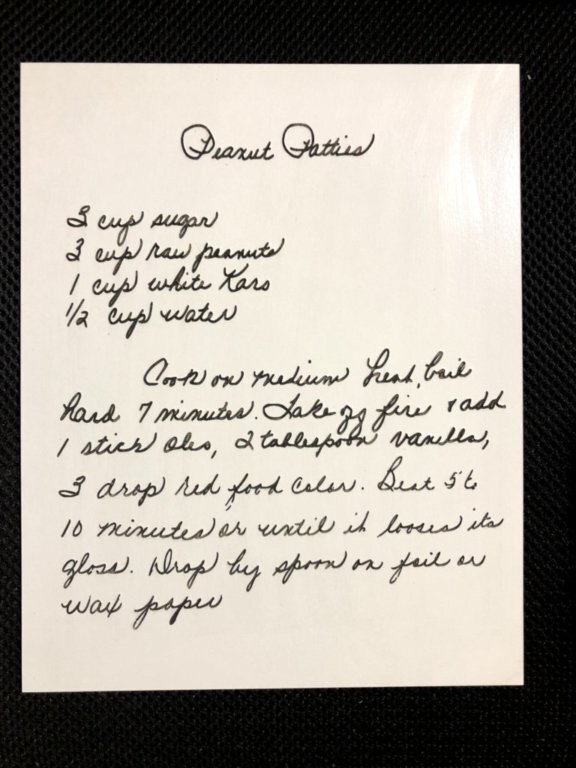 Peanut Patties
3 cup sugar
3 cup raw peanuts
1 cup white Karo
1/2 cup water
Cook on medium heat, boil
hard 7 minutes. Take off fire & add
1 stick Oleo, 2 tablespoon vanilla,
3 drop red food color. Beat 5 to
10 minutes or until it looses its
gloss. Drop by spoon on foil or
wax paper